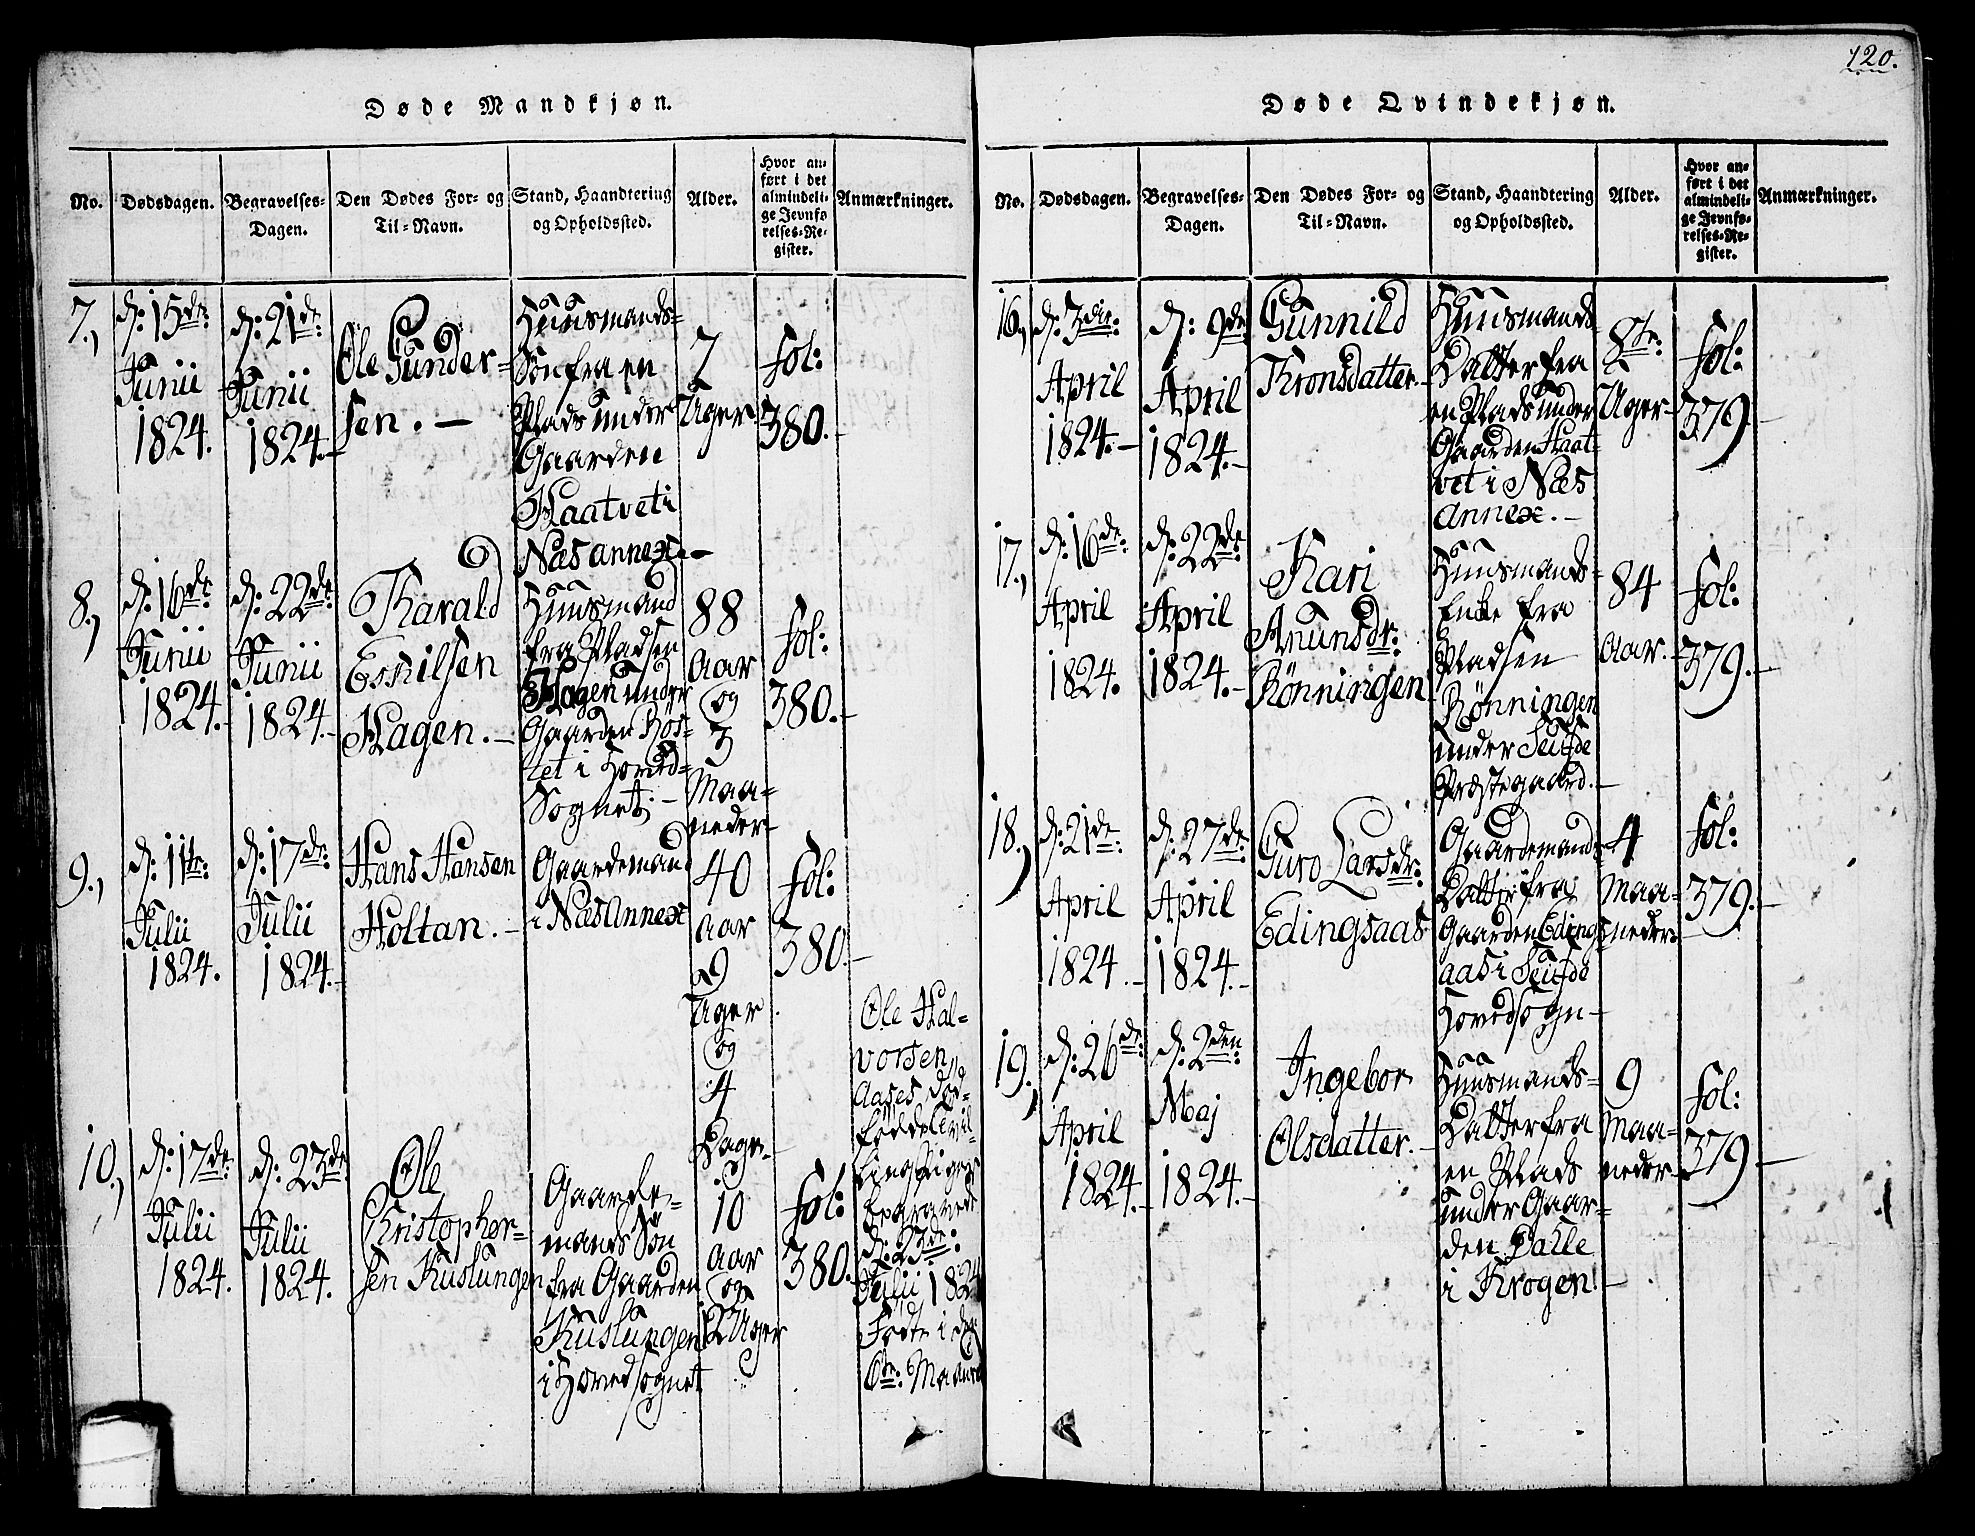 120.
Døde Mandkjøn.
No.
Dødsdagen.
Begravelses-
Dagen.
Den Dødes For- og
Til-Navn.
Stand, Haandtering
og Opholdssted.
Alder.
Hvor an-
ført i det
almindeli-
ge Jevnfø-
relses-Re-
gister.
Anmærkninger.
7.,
d: 15de:
Junii
1824.
d: 21de:
Junii
1824.-
Ole Gunder-
sen. -
Huusmands-
Søn fra en
Plads under
Gaarden
Haatvet i
Næs annex. -
7
Uger
fol:
380.-
8.,
d: 16de:
Junii
1824.-
d: 22de:
Junii
1824.-
Harald
Eskilsen
Hagen. -
Huusmand
fra Pladsen
Hagen under
Gaarden Ros-
tet i Hoved-
Sognet. -
88
Aar
og
3
Maa-
neder
fol:
380.-
9.,
d: 11te:
Julii
1824.
d: 17de:
Julii
1824.-
Hans Hansen
Holtan. -
Gaardemand
i Næs Annex
40
Aar
9
Uger
og
4
Dage.-
fol:
380.-
10.,
d: 17de:
Julii
1824.
d: 23de
Julii
1824.
Ole
Kristopher-
sen Kuslungen
Gaarde-
mands Søn
fra Gaarden
Kuslungen
i Hovedsognet
10
Aar
og
12 Uger
fol:
380.
Ole Hal-
vorsen
Aases Død-
fødde Tvil-
ling Piger
begravede
d: 23de:
Julii 1824
Fødte i den
6te: Maaned
Døde Qvindekjøn.
No.
Dødsdagen.
Begravelses-
Dagen.
Den Dødes For- og
Til-Navn.
Stand, Haandtering
og Opholdssted.
Alder.
Hvor an-
ført i det
almindeli-
ge Jevnfø-
relses-Re-
gister.
Anmærkninger.
16.,
d: 3die:
April
1824.-
d: 9de
April
1824.-
Gunnild
Kronsdatter.
Huusmands
Datter fra
en Plads under
Gaarden Haat-
vet i Næs
Annex. -
8te:
Uger-
fol:
379.-
17.,
d: 16de:
April
1824.
d: 22de
April
1824.-
Kari
Anunsdr:
Rønningen
Huusmands-
Enke fra
Pladsen
Rønningen
under Seufde
Præstegaard. -
84
Aar.-
fol:
379.-
18.,
d: 21de:
April
1824.-
d: 27de:
April
1824.-
Guro Larsdr:
Edingsaas
Gaardemands
Datter fra
Gaarden Edings-
aas i Seufde
Hovedsogn-
4
Maa-
neder-
fol:
379.-
19.,
d: 26de:
April
1824.-
d: 2den:
Maj
1824.-
Ingebor
Olsdatter. -
Huusmands-
Datter fra
en Plads
under Gaar-
den Dalle
i Krogen. -
9
Maa-
neder-
fol:
379.-